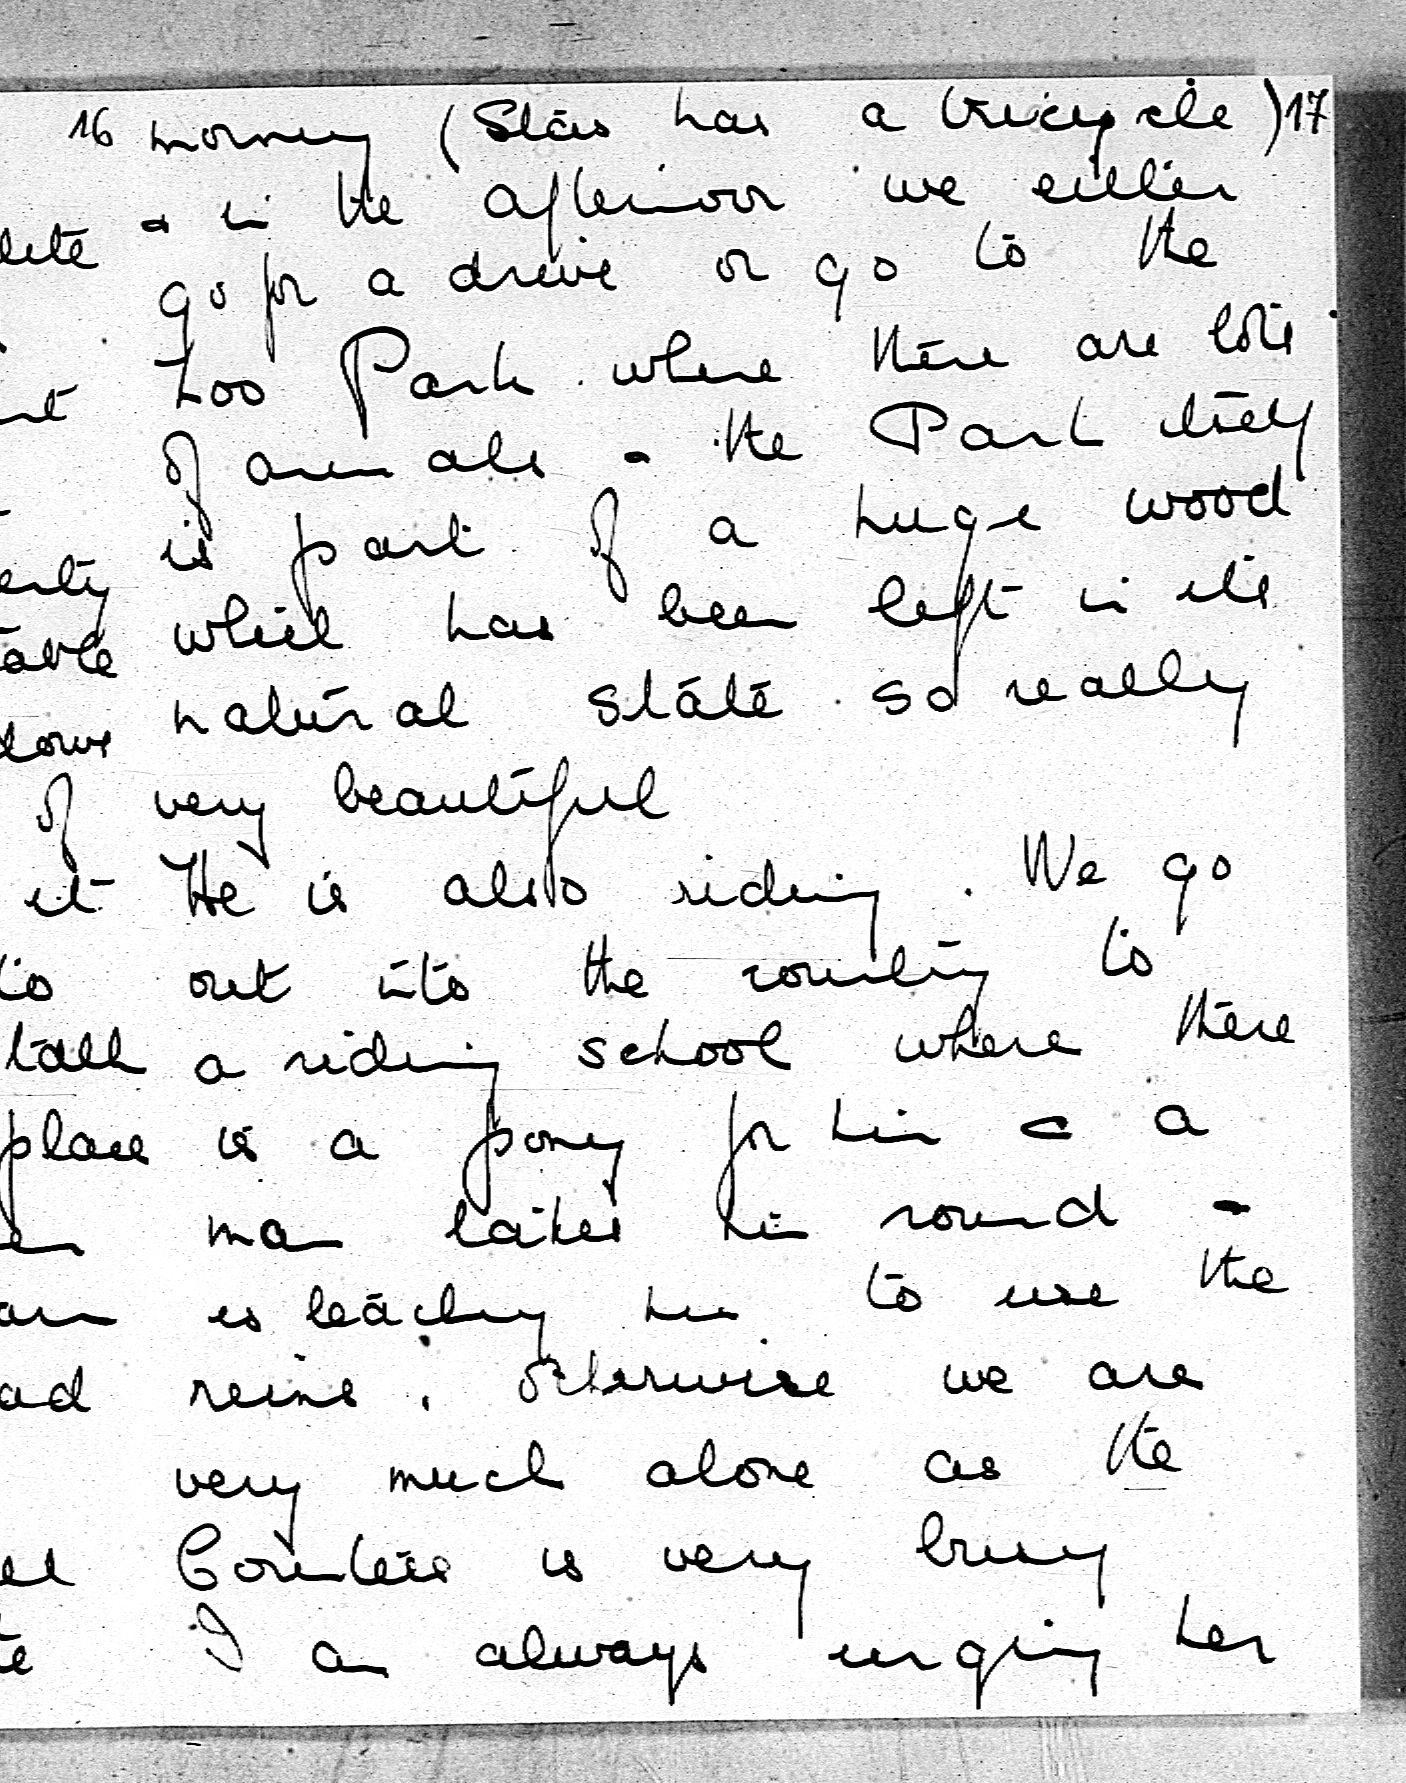 16 morning (Stas has a tricycle) 17
& in the afternoon we either
go for a drive or go to the
Zoo Park where there are lots
of animals - the Park itself
is part of a huge wood
which has been left in its
natural state so really
of very beautiful
it He is also riding. We go
to out into the country to
talk a riding school where there
place is a pony for him & a
man takes him round -
is teaching him to use the
reins. Otherwise we are
very much alone as the
Countess is very busy
I am always urging her